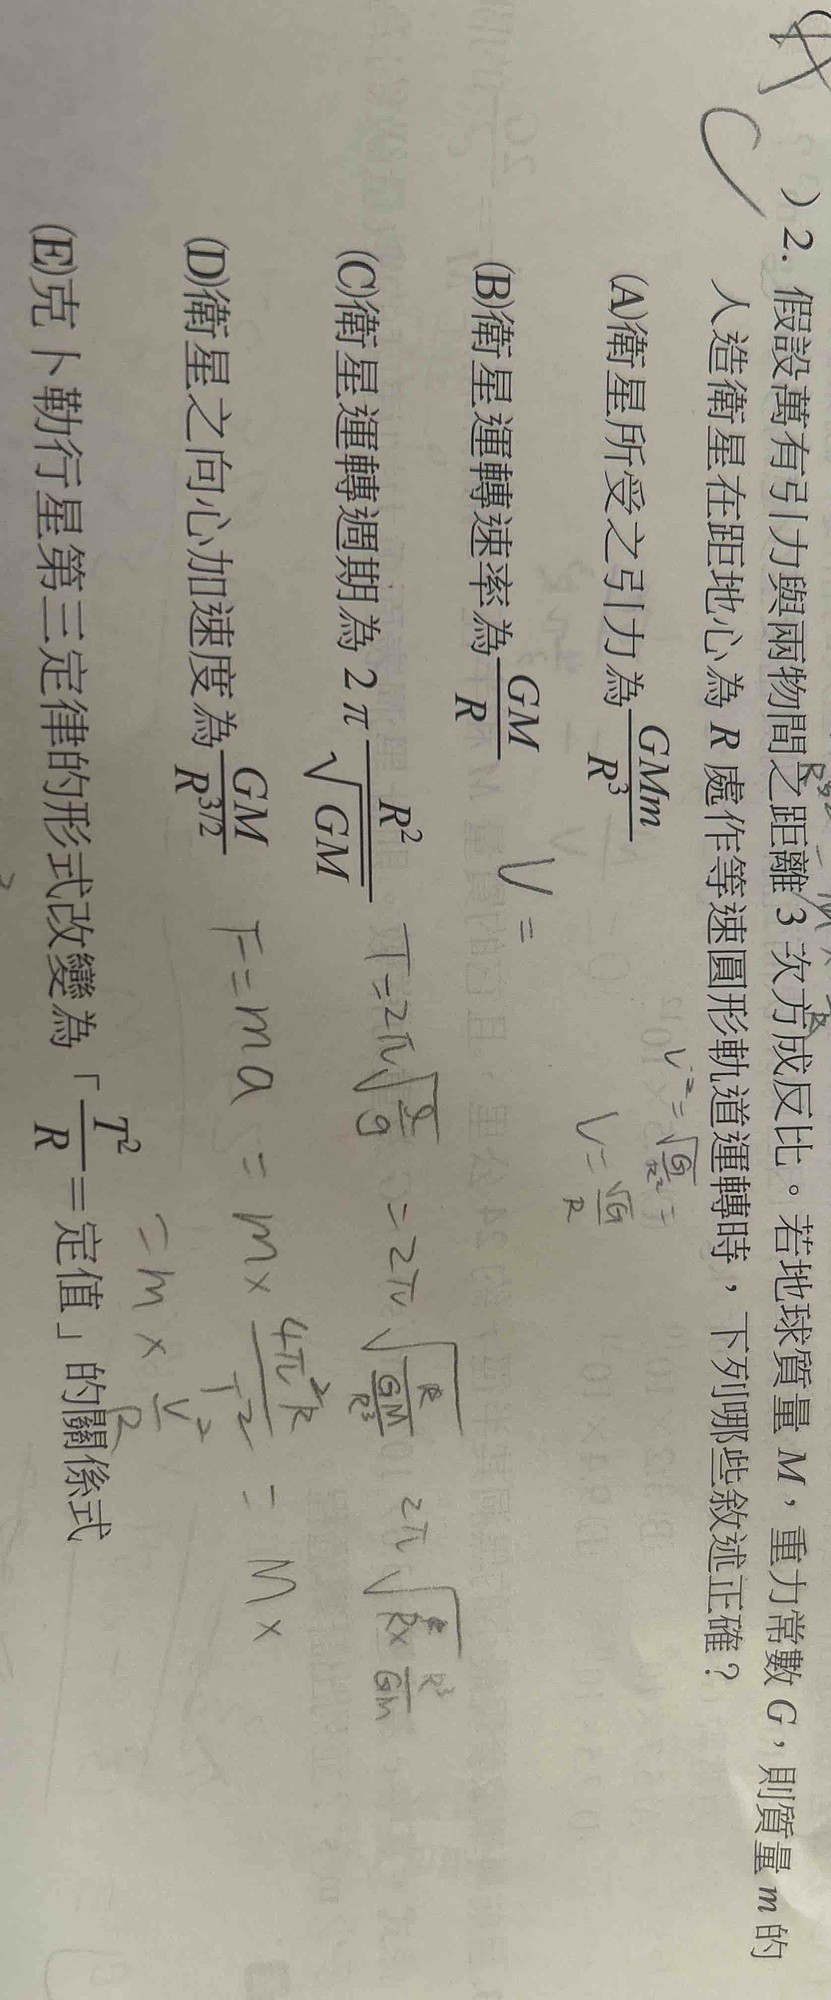 )2. 假設萬有引力與兩物間之距離 3 次方成反比。若地球質量 M，重力常數 G，則質量 m 的
人造衛星在距地心為 R 處作等速圓形軌道運轉時，下列哪些敘述正確？
V²=√G/R²
V=√G/R
(A)衛星所受之引力為 GMm/R³
(B)衛星運轉速率為 GM/R
V=
(C)衛星運轉週期為 2π R²/√GM
T=2π√R/g =2π√R/(GM/R³) 2π√R×R³/GM
(D)衛星之向心加速度為 GM/R^{3/2}
F=ma=m×4π²R/T²=m×
=m×V²/R
(E)克卜勒行星第三定律的形式改變為「T²/R=定值」的關係式